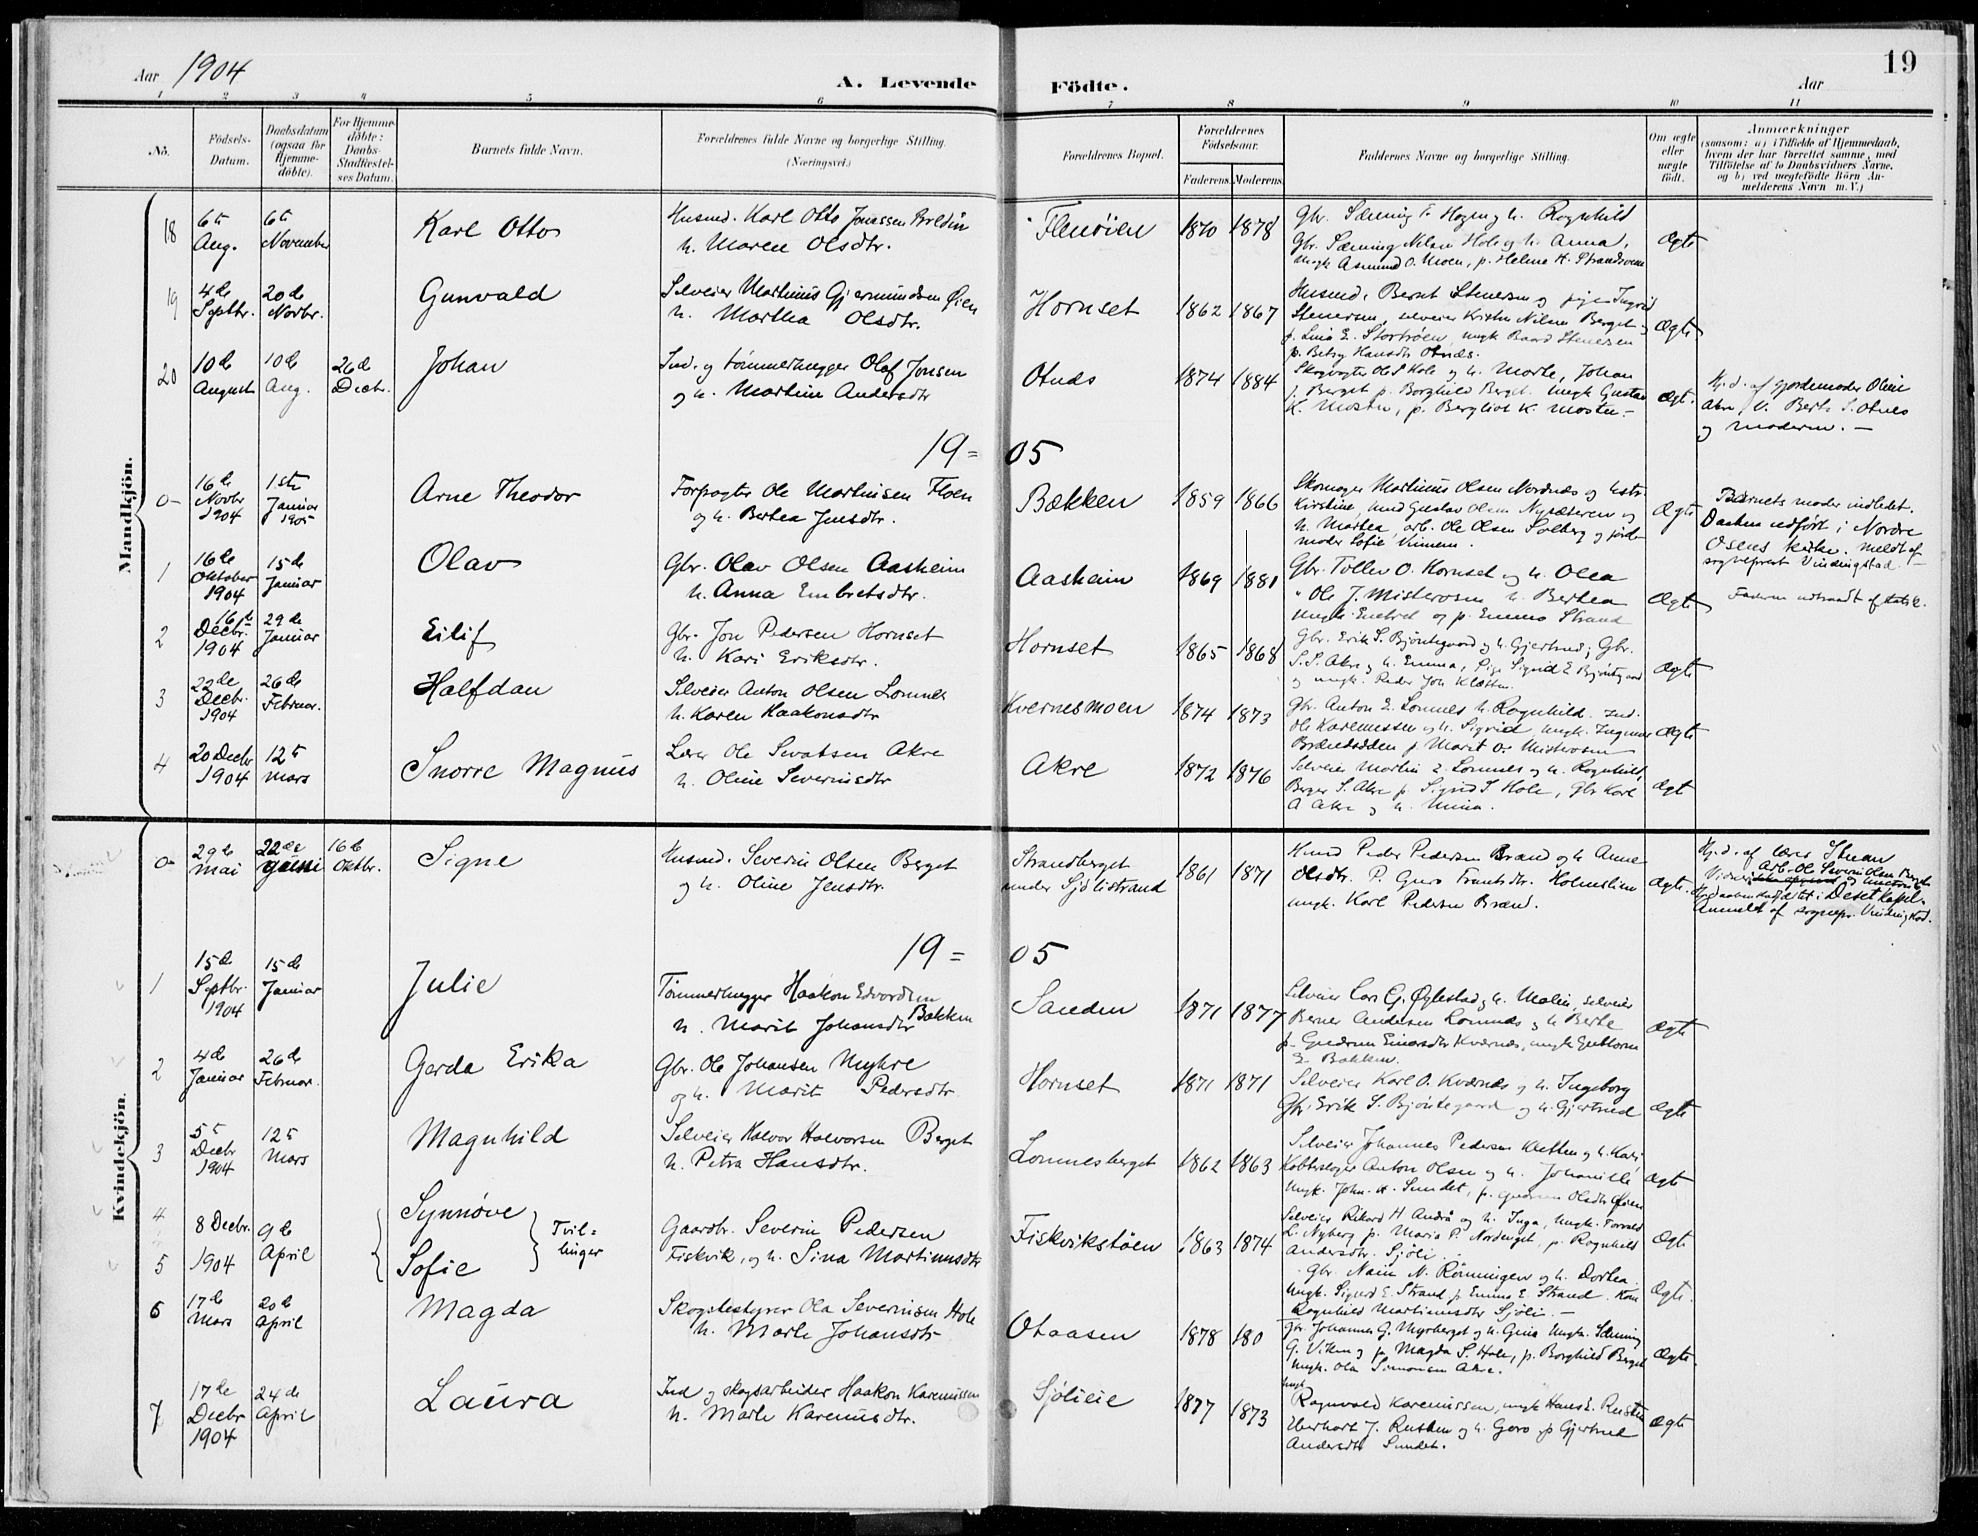 19
Aar 1904
A. Levende Födte.
Aar
1 2 3 4 5 6 7 8 9 10 11
No. Födsels-Datum. Daabsdatum (ogsaa for Hjemme-döbte). For Hjemme-döbte: Daabs-Stadfæstel-ses Datum. Barnets fulde Navn. Forældrenes fulde Navne og borgerlige Stilling. (Næringsvei.) Forældrenes Bopæl. Forældrenes Födselsaar. Faderens. Moderens. Faddernes Navne og borgerlige Stilling. Om ægte eller uægte födt. Anmærkninger (saasom: a) i Tilfælde af Hjemmedaab, hvem der har forrettet samme, med Tilföielse af to Daabsvidners Navne, og b) ved uægtefödte Börn Anmelderens Navn m. V.)
Mandkjön.
18 6te Aug. 6te November Karl Otto
Husmd. Karl Otto Jonassen
h. Maren Olsdtr.
Flenöien 1870 1878
Gbr. Sæming og h. Ragnhild
Gbr. Sæming Nilsen Hole og h. Anna,
ungk. Asmund O. Moen, p. Helene H. Strandvold
Ægte
19 4de Septbr. 20de Novbr. Gunvald
Selveier Martinus Gjermundsen Öien
h. Martha Olsdtr.
Hornset 1862 1867
Husmd. Bernt Stenersen og pige Ingrid
Stenersen, selveier Kristen Nilsen Berget og
p. Lina E. Stortröen, ungk. Baard Stenersen
p. Betsy Hansdtr Otnæs.
Ægte
20 10de August 10de Aug. 26de Decbr. Johan
Ind. og tömmerhugger Olaf Jonsen
og h. Martine Andersdtr
Otnæs 1874 1884
Skogvogter Ole S Hole og h. Marte, Johan
J. Berget p. Borghild Berget. Ungk Gustav
K. Mosten, p. Bergliot K. Mosten. -
Ægt.
Hj. d. af gjordemoder Oline
Akre, V. Berte S. Otnes
og moderen. -
19 = 05
0 16de Novbr 1904 1ste Januar 1905 Arne Theodor
Forpagter Ole Martinsen Floen
og h. Berthea Jensdtr.
Bækken 1859 1866
Skomager Martinus Olsen Nordnæs og hstr.
Kirstine, Gustav Olsen Nysæteren og
h. Marthea, arb. Ole Olsen Solberg og jord-
moder Sofie
Ægte
Barnets moder indledet.
Daaben udfört i Nordre
Osens kirke. Meldt af
sogneprest Vindingstad. -
1 16de Oktober 1904 15de Januar Olav
Gbr. Olav Olsen Aasheim
h. Anna Embretsdtr.
Aasheim 1869 1881
Gbr. Tollev O. Hornset og h. Olea
" Ole J. Misterosen h. Berthea
ungk. Embret og p. Emma Strand
Ægte
Faderen udtraadt af statsk.
2 16de Decbr. 1904 29de Januar Eilif
Gbr. Jon Pedersen Hornset
h. Kari Eriksdtr.
Hornset 1865 1868
Gbr. Erik S. Bjöntegaard og h. Gjertrud; Gbr.
S. S. Akre og h. Emma, Pige Sigrid E Bjöntegaard
og ungk. Peder Jon Kletten.
Ægte
3 22de Decbr. 1904 26de Februar. Halfdan
Selveier Anton Olsen Lomnes
h. Karen Haakonsdtr
Kvernesmoen 1874 1873
Gbr. Anton E. Lomnes h. Ragnhild. Ind.
Ole Karenussen og h. Sigrid, ungk. Ingemar
Brændsödden p Marit Misterosen
Ægte
4 20 Decbr 1904 12te mars Snorre Magnus
Lærer Ole Sevatsen Akre
h. Oline Severinsdtr
Akre 1872 1876
Selveier Martin E. Lomnes og h. Ragnhild,
Berger S. Akre p Sigrid S Hole, Gbr Karl
A Akre og h. Mina.
Ægt
Kvindekjön.
0 29de mai 22de juni 16de Oktbr. Signe
Husmd. Severin Olsen Berget
og h. Oline Jensdtr.
Strandberget
under Sjölistrand 1861 1871
Husmd Peder Pedersen Brænd og h Anne
Olsdtr. P. Guro Frantsdtr. Holmslien
ungk. Karl Pedersen Brænd.
Ægte.
Hj. d. af lærer Stuan
Arb. Ole Severin Olsen Berget
i Deset kapel.
Anmeldt af sognepr. Vindingstad.
19 = 05
1 15de Septbr. 1904 15de Januar Julie
Tömmerhugger Haakon Edvardsen Bakken
h. Marit Johansdtr
Sanden 1871 1877
Selveier Lars G. Öglestad og h. Malin, selveier
Berner Andersen Lomnæs og h Berte
p. Gudrun Einarsdtr Kværnæs, ungk Guttorm
E. Bakken.
Ægte
2 4de Januar 26de Februar. Gerda Erika
Gbr. Ole Johansen Myhre
og h. Marit Pedersdtr.
Hornset 1871 1871
Selveier Karl O. Kværnæs og h. Ingeborg
Gbr. Erik S. Bjöntegaard og h. Gjertrud
Ægte
3 5te Decbr 1904 12te Mars Magnhild
Selveier Halvor Halvorsen Berget
h. Petra Hansdtr.
Lomnesberget 1862 1863
Selveier Johannes Pedersen Kletten og h. Kari
Kobberslager Anton Olsen og h. Johanille
Ungk. John. H. Sundet, p. Gudrun Olsdtr Öien
Ægte
4 5 8 Decbr. 1904 9de April Synnöve Sofie Tvil-linger
Gaardbr. Severin Pedersen
Fiskvik, og h. Lina Martinusdtr
Fiskvikstöen 1863 1874
Selveier Rikard H Andrå og h. Inga, Ungk. Torvald
L. Nyberg p. Maria P. Nordenget, p. Ragnhild
Andersdtr. Sjöli.
Ægte
Gbr. Nain N. Rönningen og h. Dorthea.
Ungk. Sigurd E. Strand p Emma E Strand. Kone
Ragnhild Martinusdtr Sjöli. -
Ægte.
6 17de Mars 20de April Magda
Skogbestyrer Ola Severinsen Hole
h. Marte Johansdtr
Otaasen 1878 180
Gbr. Johannes G. Myrberget og h. Gina Ungk. Sæming
G. Viken og p. Magda S. Hole, p. Borghild Berget
Ungk. Ola Simonsen Akre.
Ægte.
7 17de Decbr 1904 24de April Laura
Ind og skogsarbeider Haakon Karenussen
h. Marte Karenusdtr.
Sjölieie 1877 1873
Ungk
Ragnvald Karenussen, ungk Hans E. Rusten
Eberhart J. Rusten og h. Goro p Gjertrud
Andersdtr Sundet.
Ægte